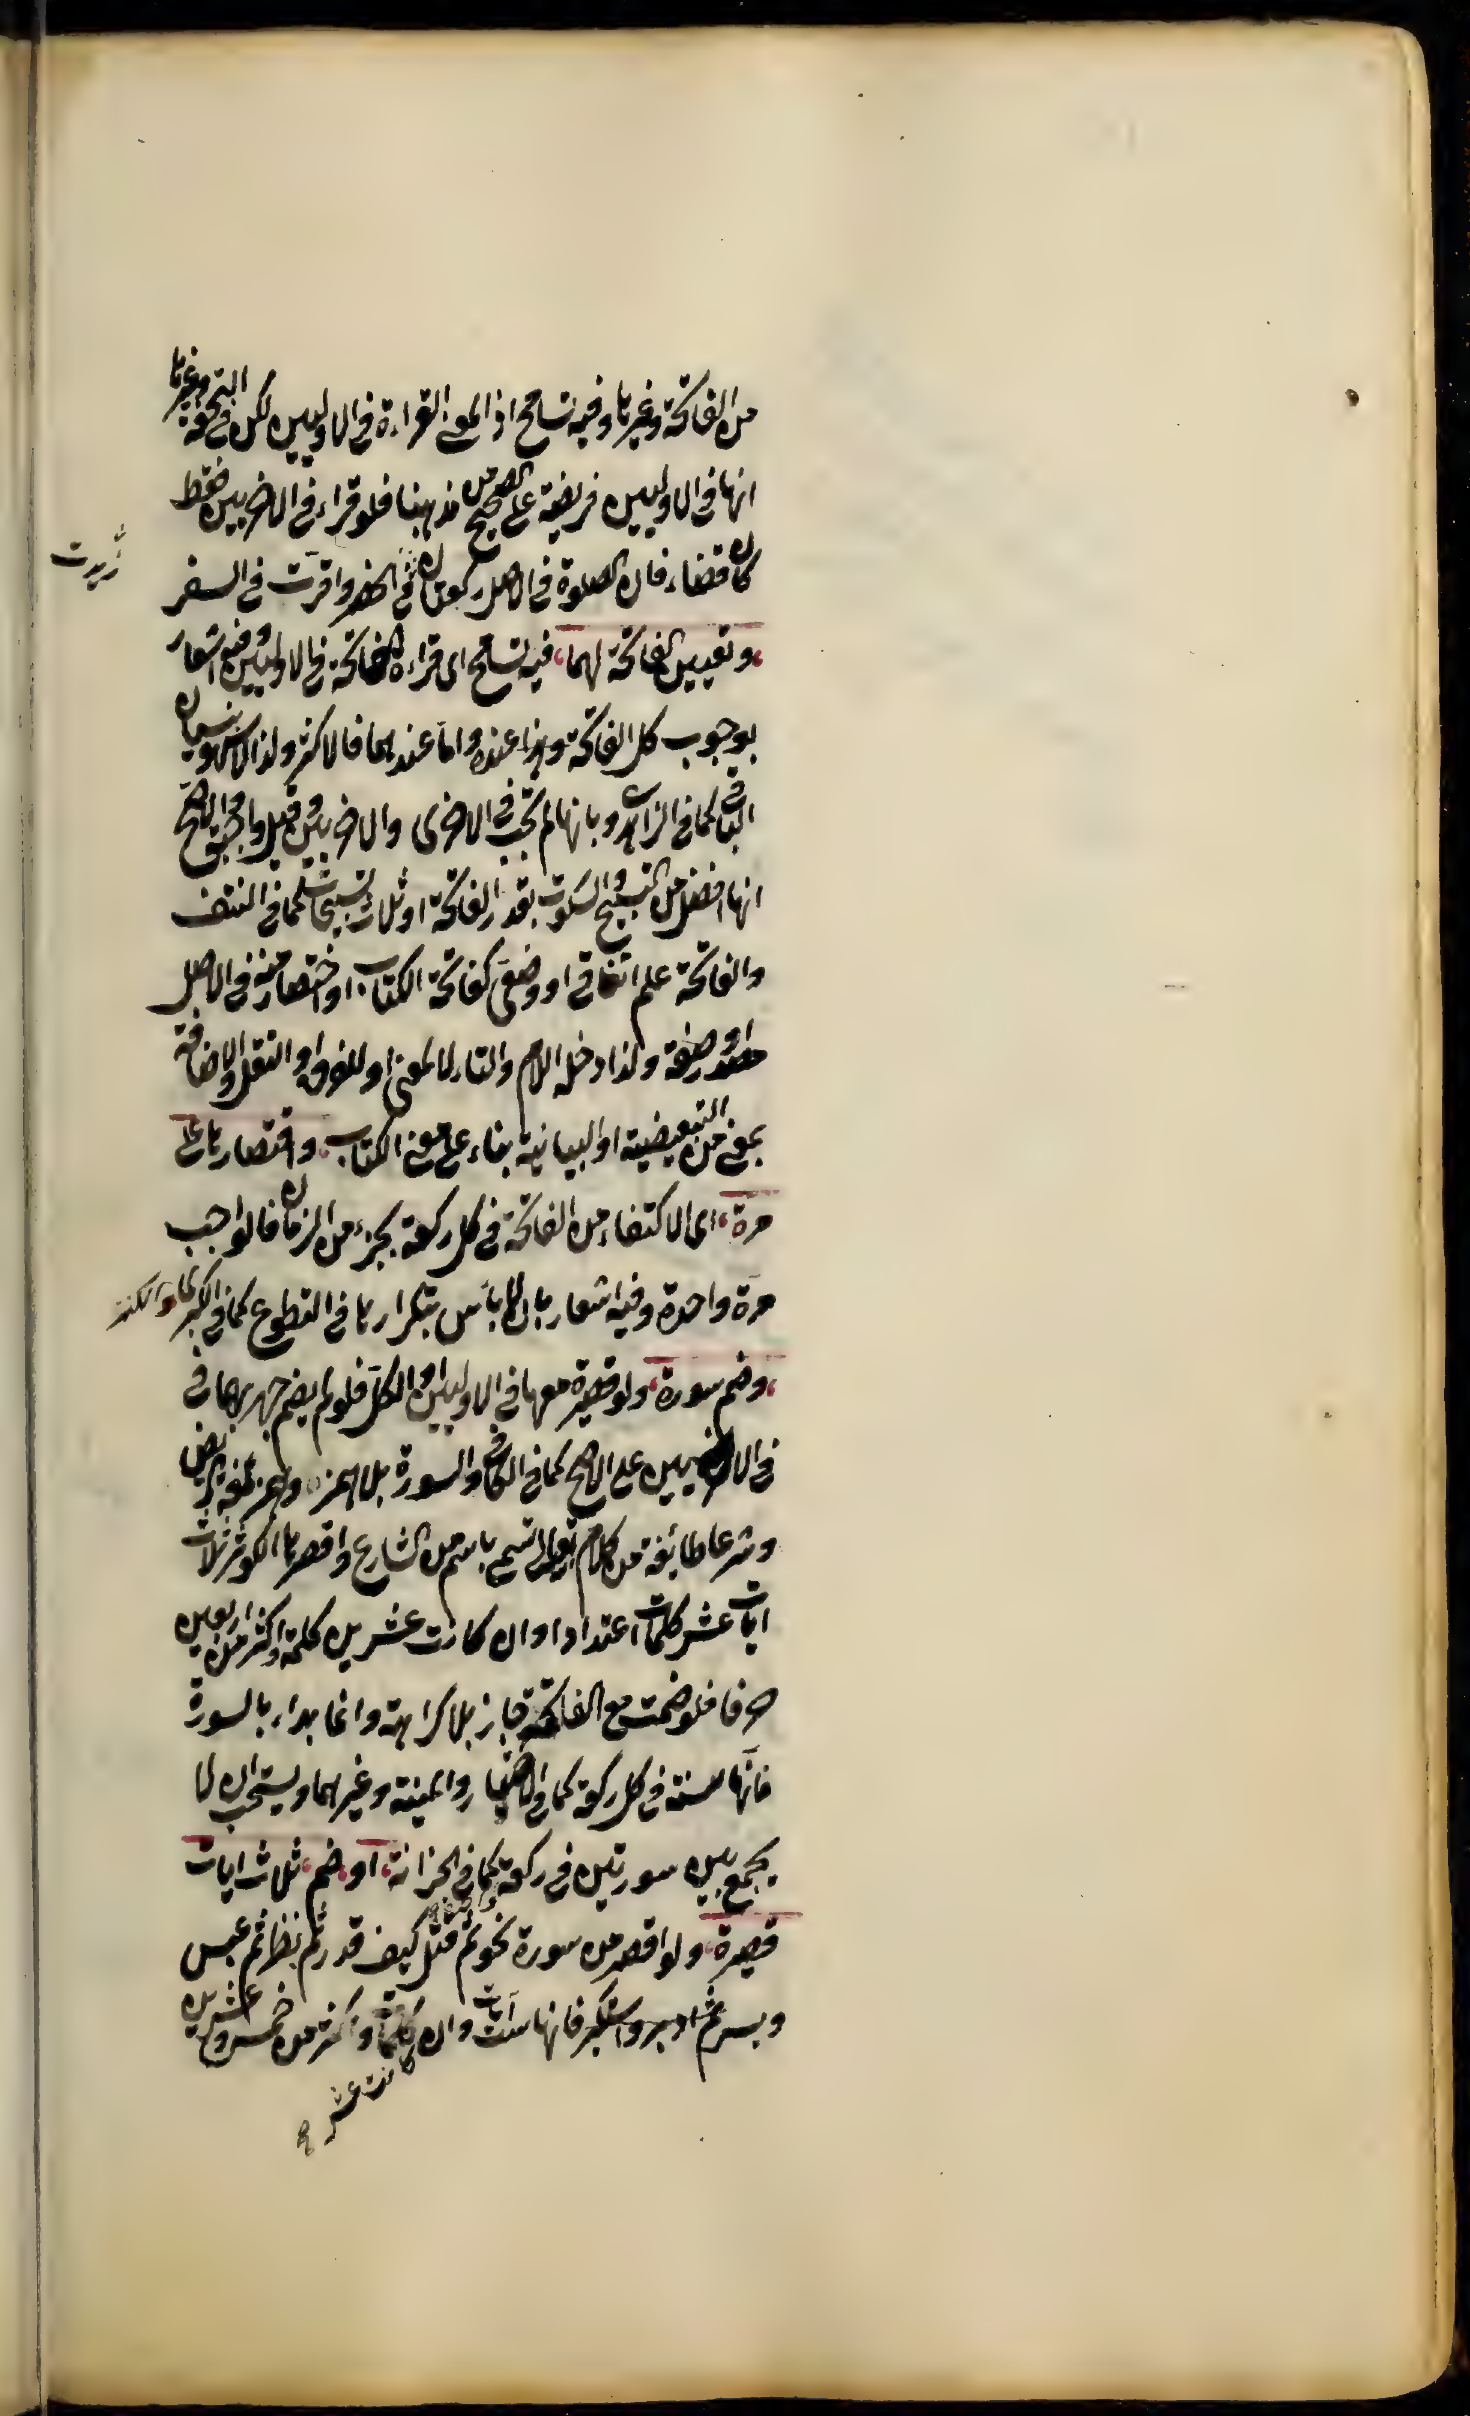 من الفاتحة وغيرها وفيه تسامح اذ المعنى القراءة فى الاوليين لكن فى التحفة وغيرها
انها فى الاوليين فريضة على الصحيح من مذهبنا فلو قراء فى الاخريين فقط
كان قضاء فان الصلوة فى الاصل ركعتان فى الحضر واقرت فى السفر
زيدت
وتعيين الفاتحة لهما فيه تسامح اى قراءة الفاتحة فى الاوليين وفيه اشعار
بوجوب كل الفاتحة وهذا عنده واما عندهما فالاكثر ولذا لا سهو بنسيان
الباقى كما فى الزاهدى وبانها لم تجب فى الاخرى والاخريين وقيل واجبة والاصح
انها افضل من التسبيح والسكوت بقدر الفاتحة او ثلاث تسبيحات كما فى النتف
والفاتحة علم اتفاقى او وضعى كفاتحة الكتاب او اختصار منه فى الاصل
او صفة ولذا دخله اللام والتاء لا لمعنى او للفرق او النقل والاضافة
بمعنى من التبعيضية او البيانية بناء على معنى الكتاب واقتصارها على
مرة اى الاكتفاء من الفاتحة فى كل ركعة بجزء من الزمان فالواجب
مرة واحدة وفيه اشعار بان لا بأس بتكرارها فى التطوع كما فى الكبرى
وضم سورة ولو قصيرة معها فى الاوليين او الكل فلو لم يضم جهر بهما فى
فى الاخريين على الاصح كما فى الكافى والسورة بلا همز وبهمز لغة
وشرعا طائفة من كلام تعالى تسمى باسم من الشارع واقصرها الكوثر ثلاث
ايات عشر كلمات اعتدادا وان كانت عشرين كلمة واكثر من اربعين
حرفا فلو ضمت مع الفاتحة جاز بلا كراهة وانما بداء بالسورة
فانها سنة فى كل ركعة كما فى الاختيار والمنية وغيرهما ويستحب ان لا
يجمع بين سورتين فى ركعة كما فى الخزانة او ضم ثلاث ايات
قصيرة ولو اقصر من سورة نحو ثم قتل كيف قدر ثم نظر ثم عبس
وبسر ثم ادبر واستكبر فانها آيات وان كلمة واكثر من خمس وعشرين
كانت عشر